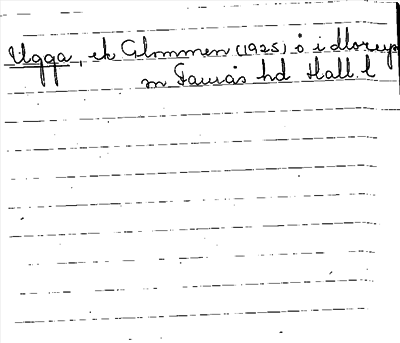 Ugga, ek Glommen (1925) ö i dlorup
sn Faurås hd Hall. l